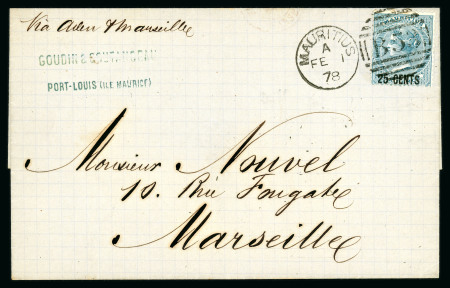 Via Aden & Marseille
GOUDIN &
PORT-LOUIS (ILE MAURICE)
MAURITIUS
A
FE 1
78
25 CENTS
Monsieur Nouvel
10. Rue Fongate
Marseille